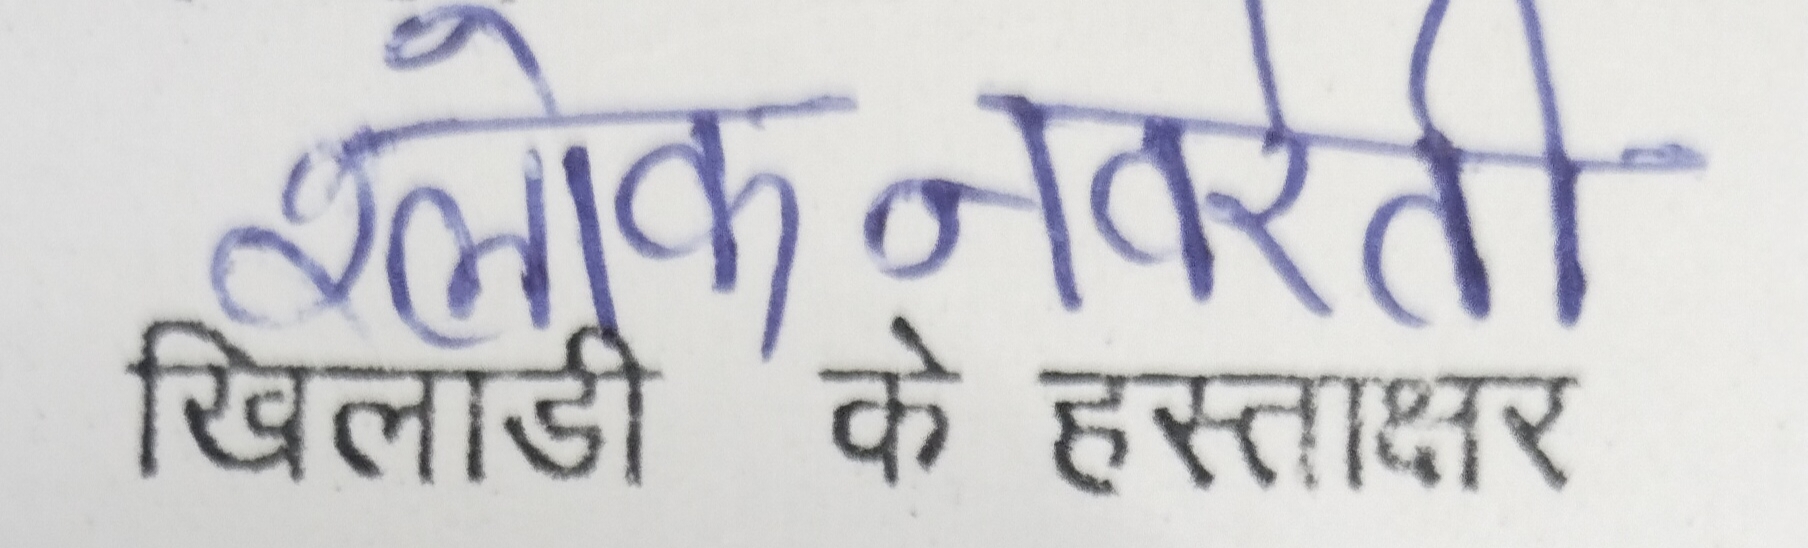 श्लोक नवरेती
खिलाडी के हस्ताक्षर